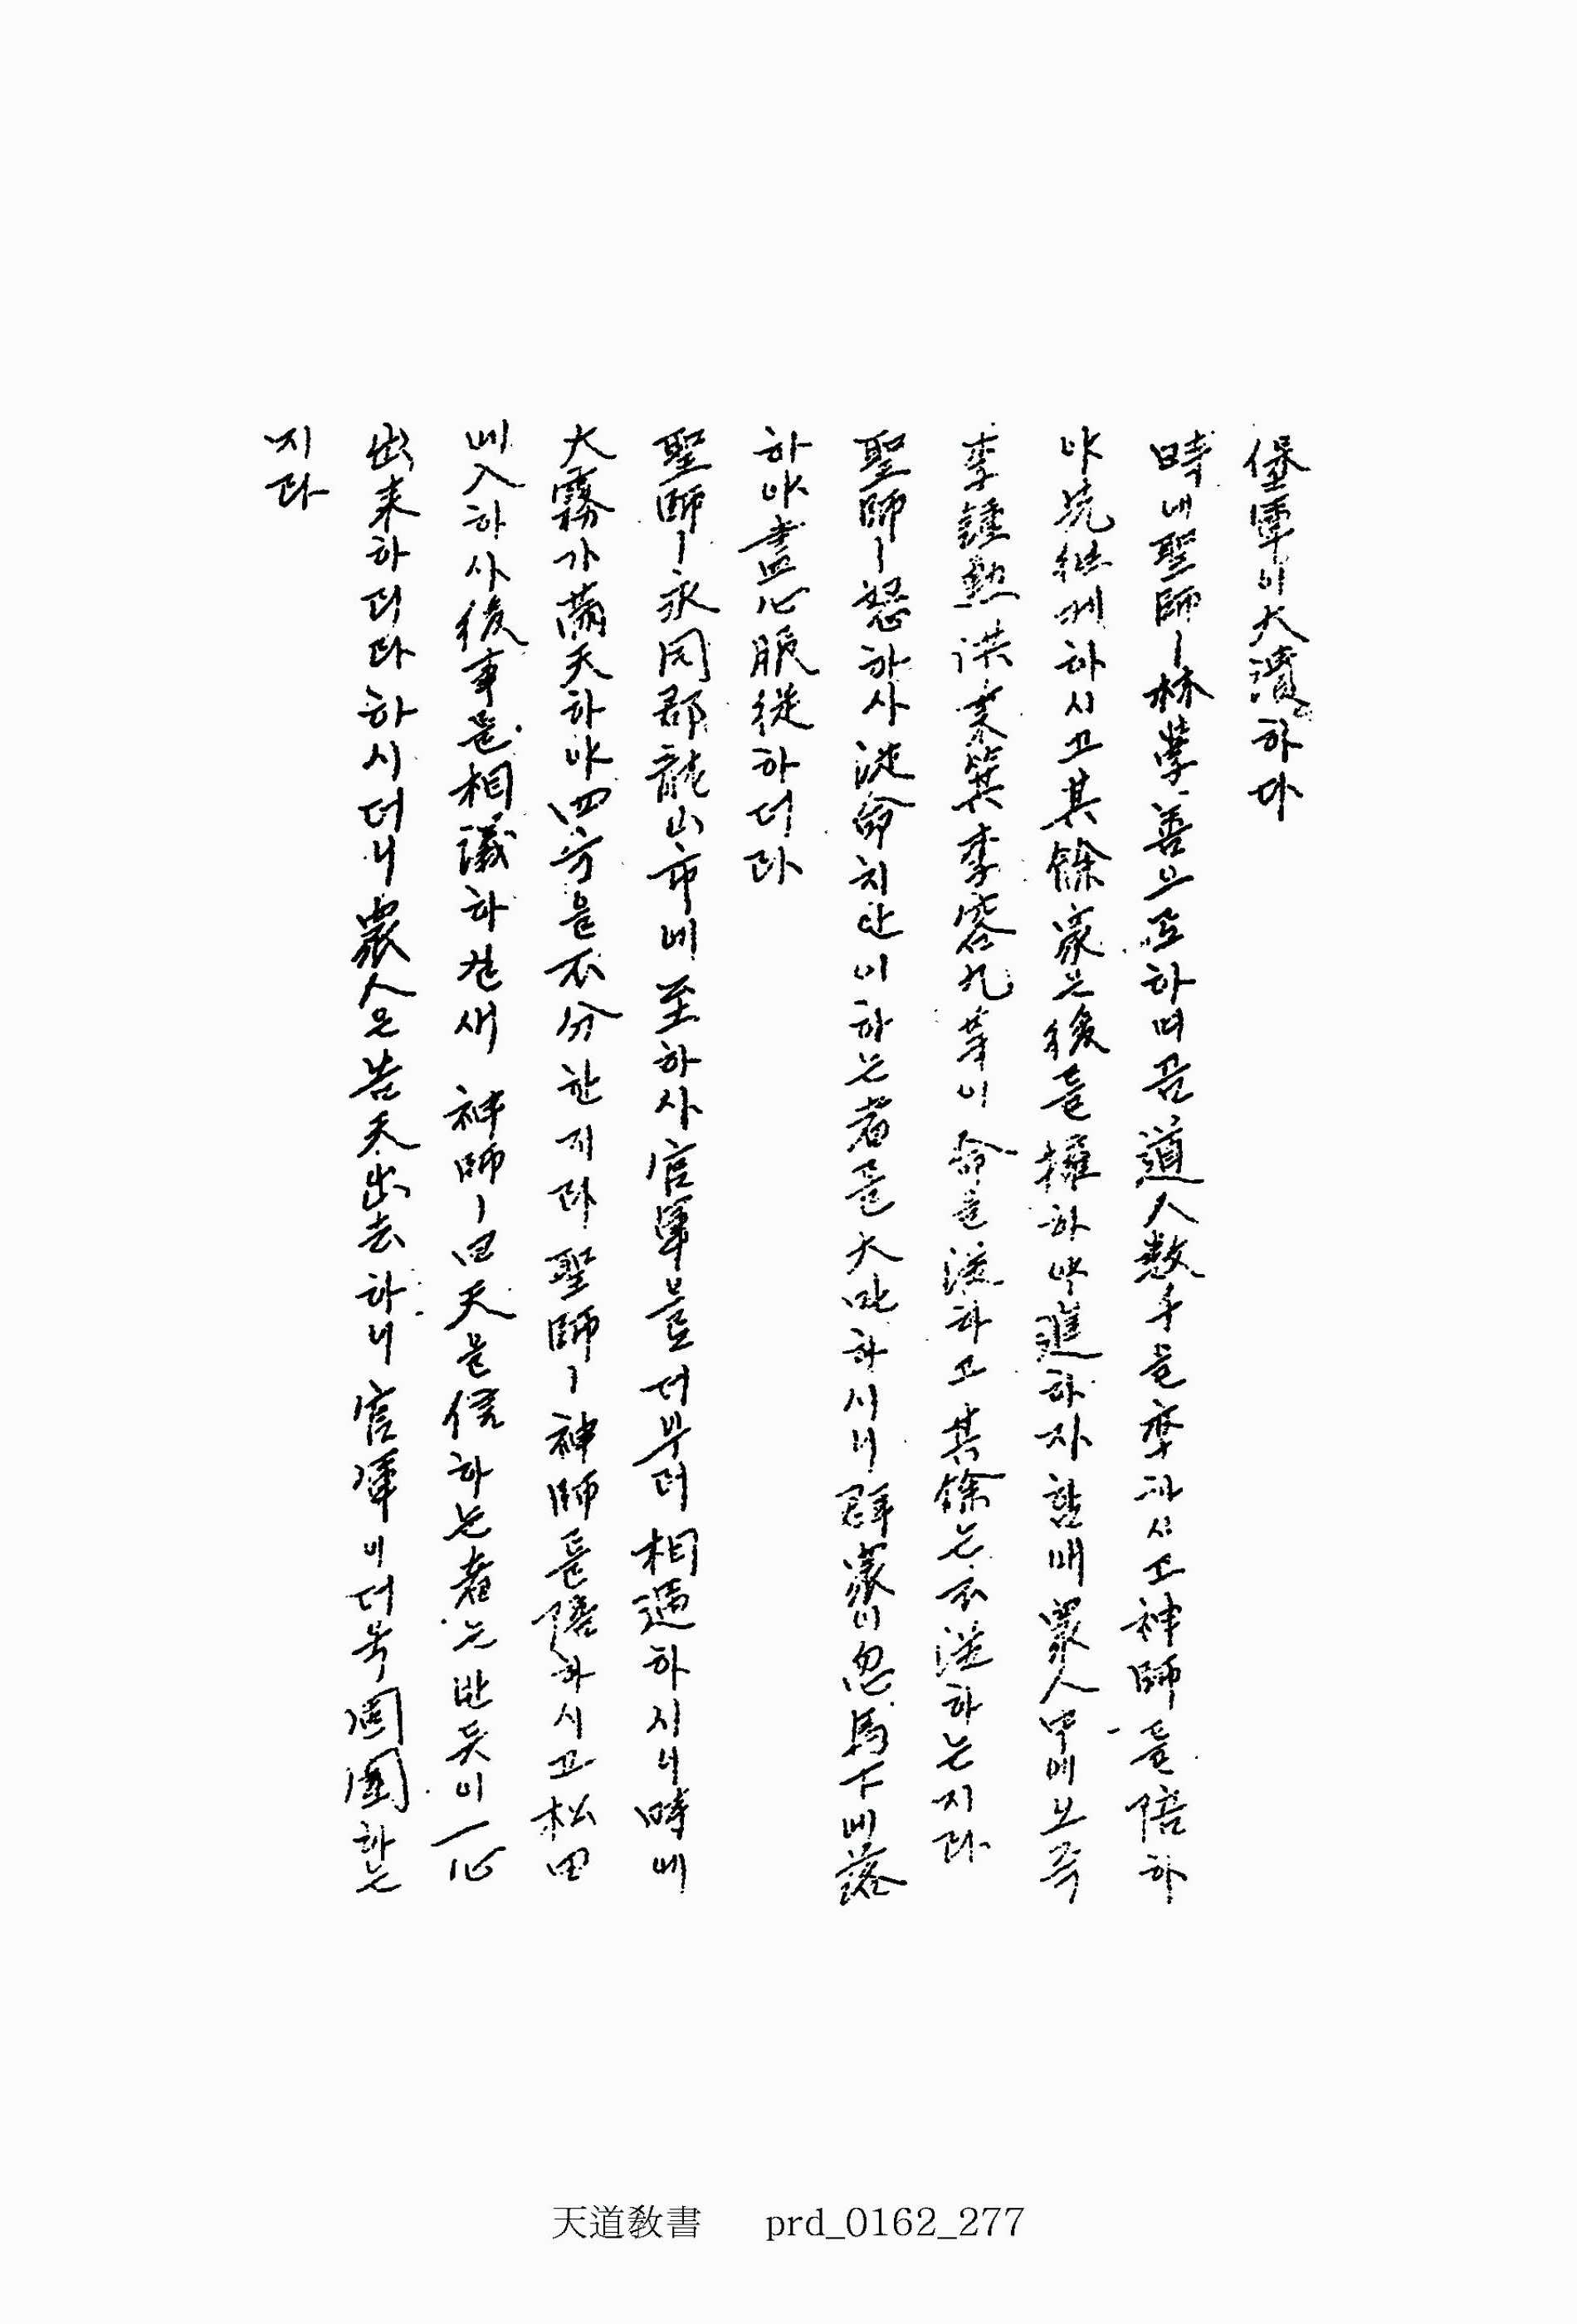 堡軍이大潰하다
時에聖師ㅣ林學善으로하며곰道人數千을率하시고神師를陪하
야先往케하시고其餘衆은後를擁하야進하자함애衆人中에오즉
李鍾勳洪秉箕李容九等이命을從하고其餘는不從하는지라
聖師ㅣ怒하사從命치안이하는者를大叱하시니群衆이忽馬下에落
하야盡心服從하더라
聖師ㅣ永同郡龍山市에至하사官軍을더부러相遇하시니時에
大霧가滿天하야四方을不分한지라聖師ㅣ神師를陪하시고松田
에入하사後事를相議하실새 神師ㅣ曰天을信하는者는반듯이一心
出來하리라하시더니衆人은告天出去하니官軍이더욱周圍하는
지라
天道敎書 prd_0162_277